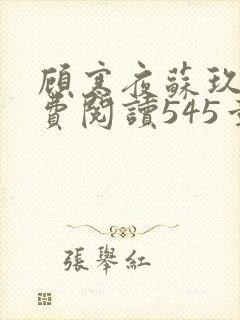 顧寒夜蘇玖
費閱讀545
張舉紅